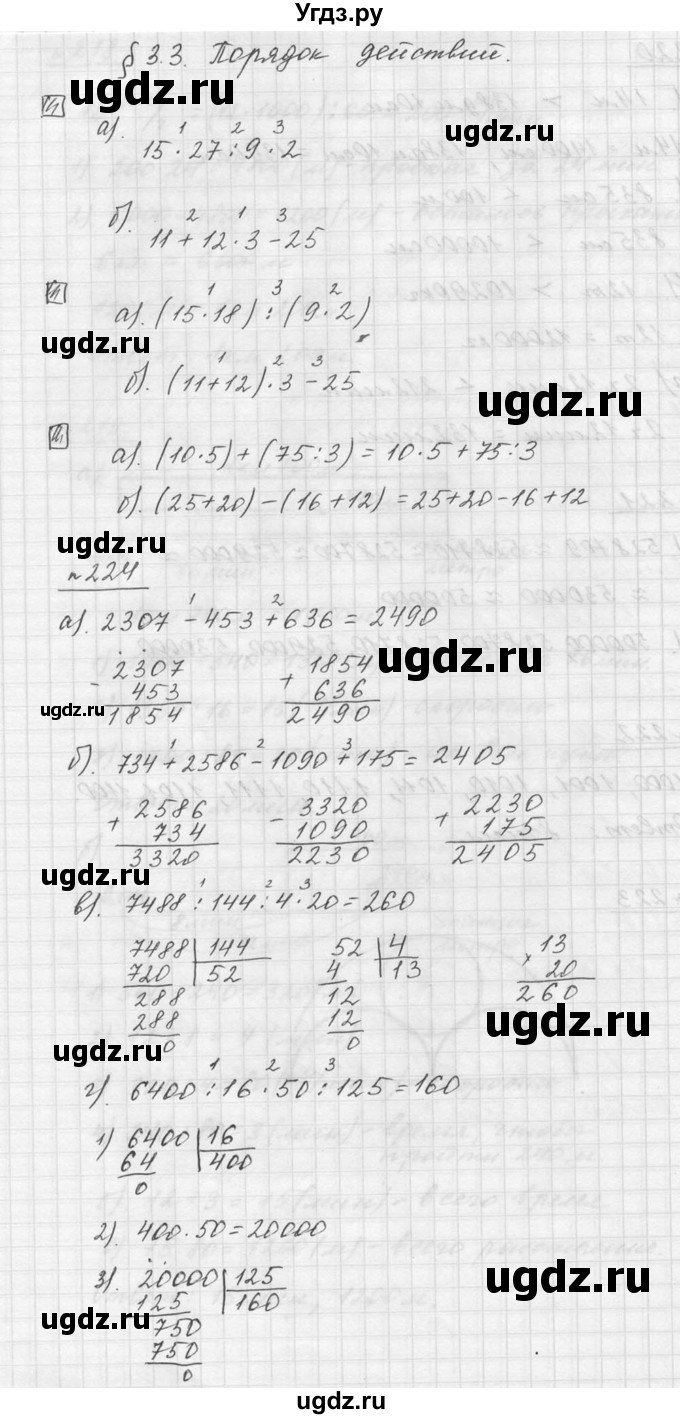 Угдз.ру
§ 3.3. Порядок действий.
ugdz.ru
1 2 3
а). 15 · 27 : 9 · 2
ugdz.ru
2 1 3
б). 11 + 12 · 3 - 25
1 3 2
а). (15 · 18) : (9 · 2)
ugdz.ru
1 2 3
б). (11+12) · 3 - 25
ugdz.ru
а). (10 · 5) + (75 : 3) = 10 · 5 + 75 : 3
б). (25+20) - (16 + 12) = 25+20 - 16 + 12
ugdz.ru
n 224
1 2
а). 2307 - 453 + 636 = 2490
ugdz.ru
2307 1854
- 453 + 636
1854 2490
ugdz.ru
1 2 3
б). 734 + 2586 - 1090 + 175 = 2405
2586 3320 2230
+ 734 - 1090 + 175
3320 2230 2405
ugdz.ru ugdz.ru
1 2 3
в). 7488 : 144 : 4 · 20 = 260
7488 144 52 4 13
720 52 4 13 × 20
288 12 260
288 12
0 0
ugdz.ru
ugdz.ru
1 2 3
г). 6400 : 16 · 50 : 125 = 160
1) 6400 16
64 400
0
ugdz.ru
2). 400 · 50 = 20000
3). 20000 125
125 160
750
750
0
ugdz.ru
ugdz.ru
ugdz.ru